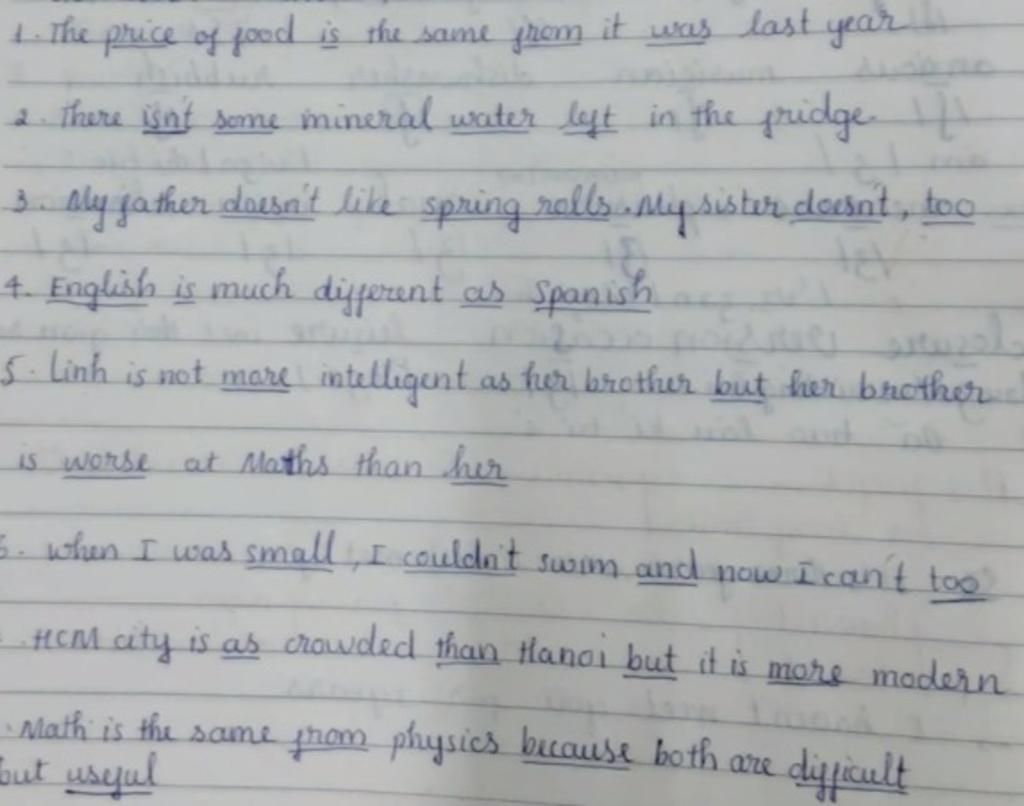 1. The price of food is the same from it was last year
2. There isn't some mineral water left in the fridge.
3. My father doesn't like spring rolls. My sister doesn't, too
4. English is much different as Spanish
5. Linh is not more intelligent as her brother but her brother
is worse at Maths than her
6. when I was small, I couldn't swim and now I can't too
. HCM city is as crowded than Hanoi but it is more modern
. Math is the same from physics because both are difficult
but useful